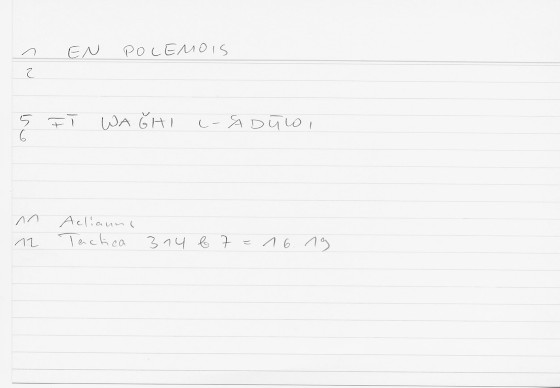 1 EN POLEMOIS
2
5 FĪ WAǦHI L-ʿADŪWI
6
11 Aelianus
12 Tactica 314 b 7 = 16 19